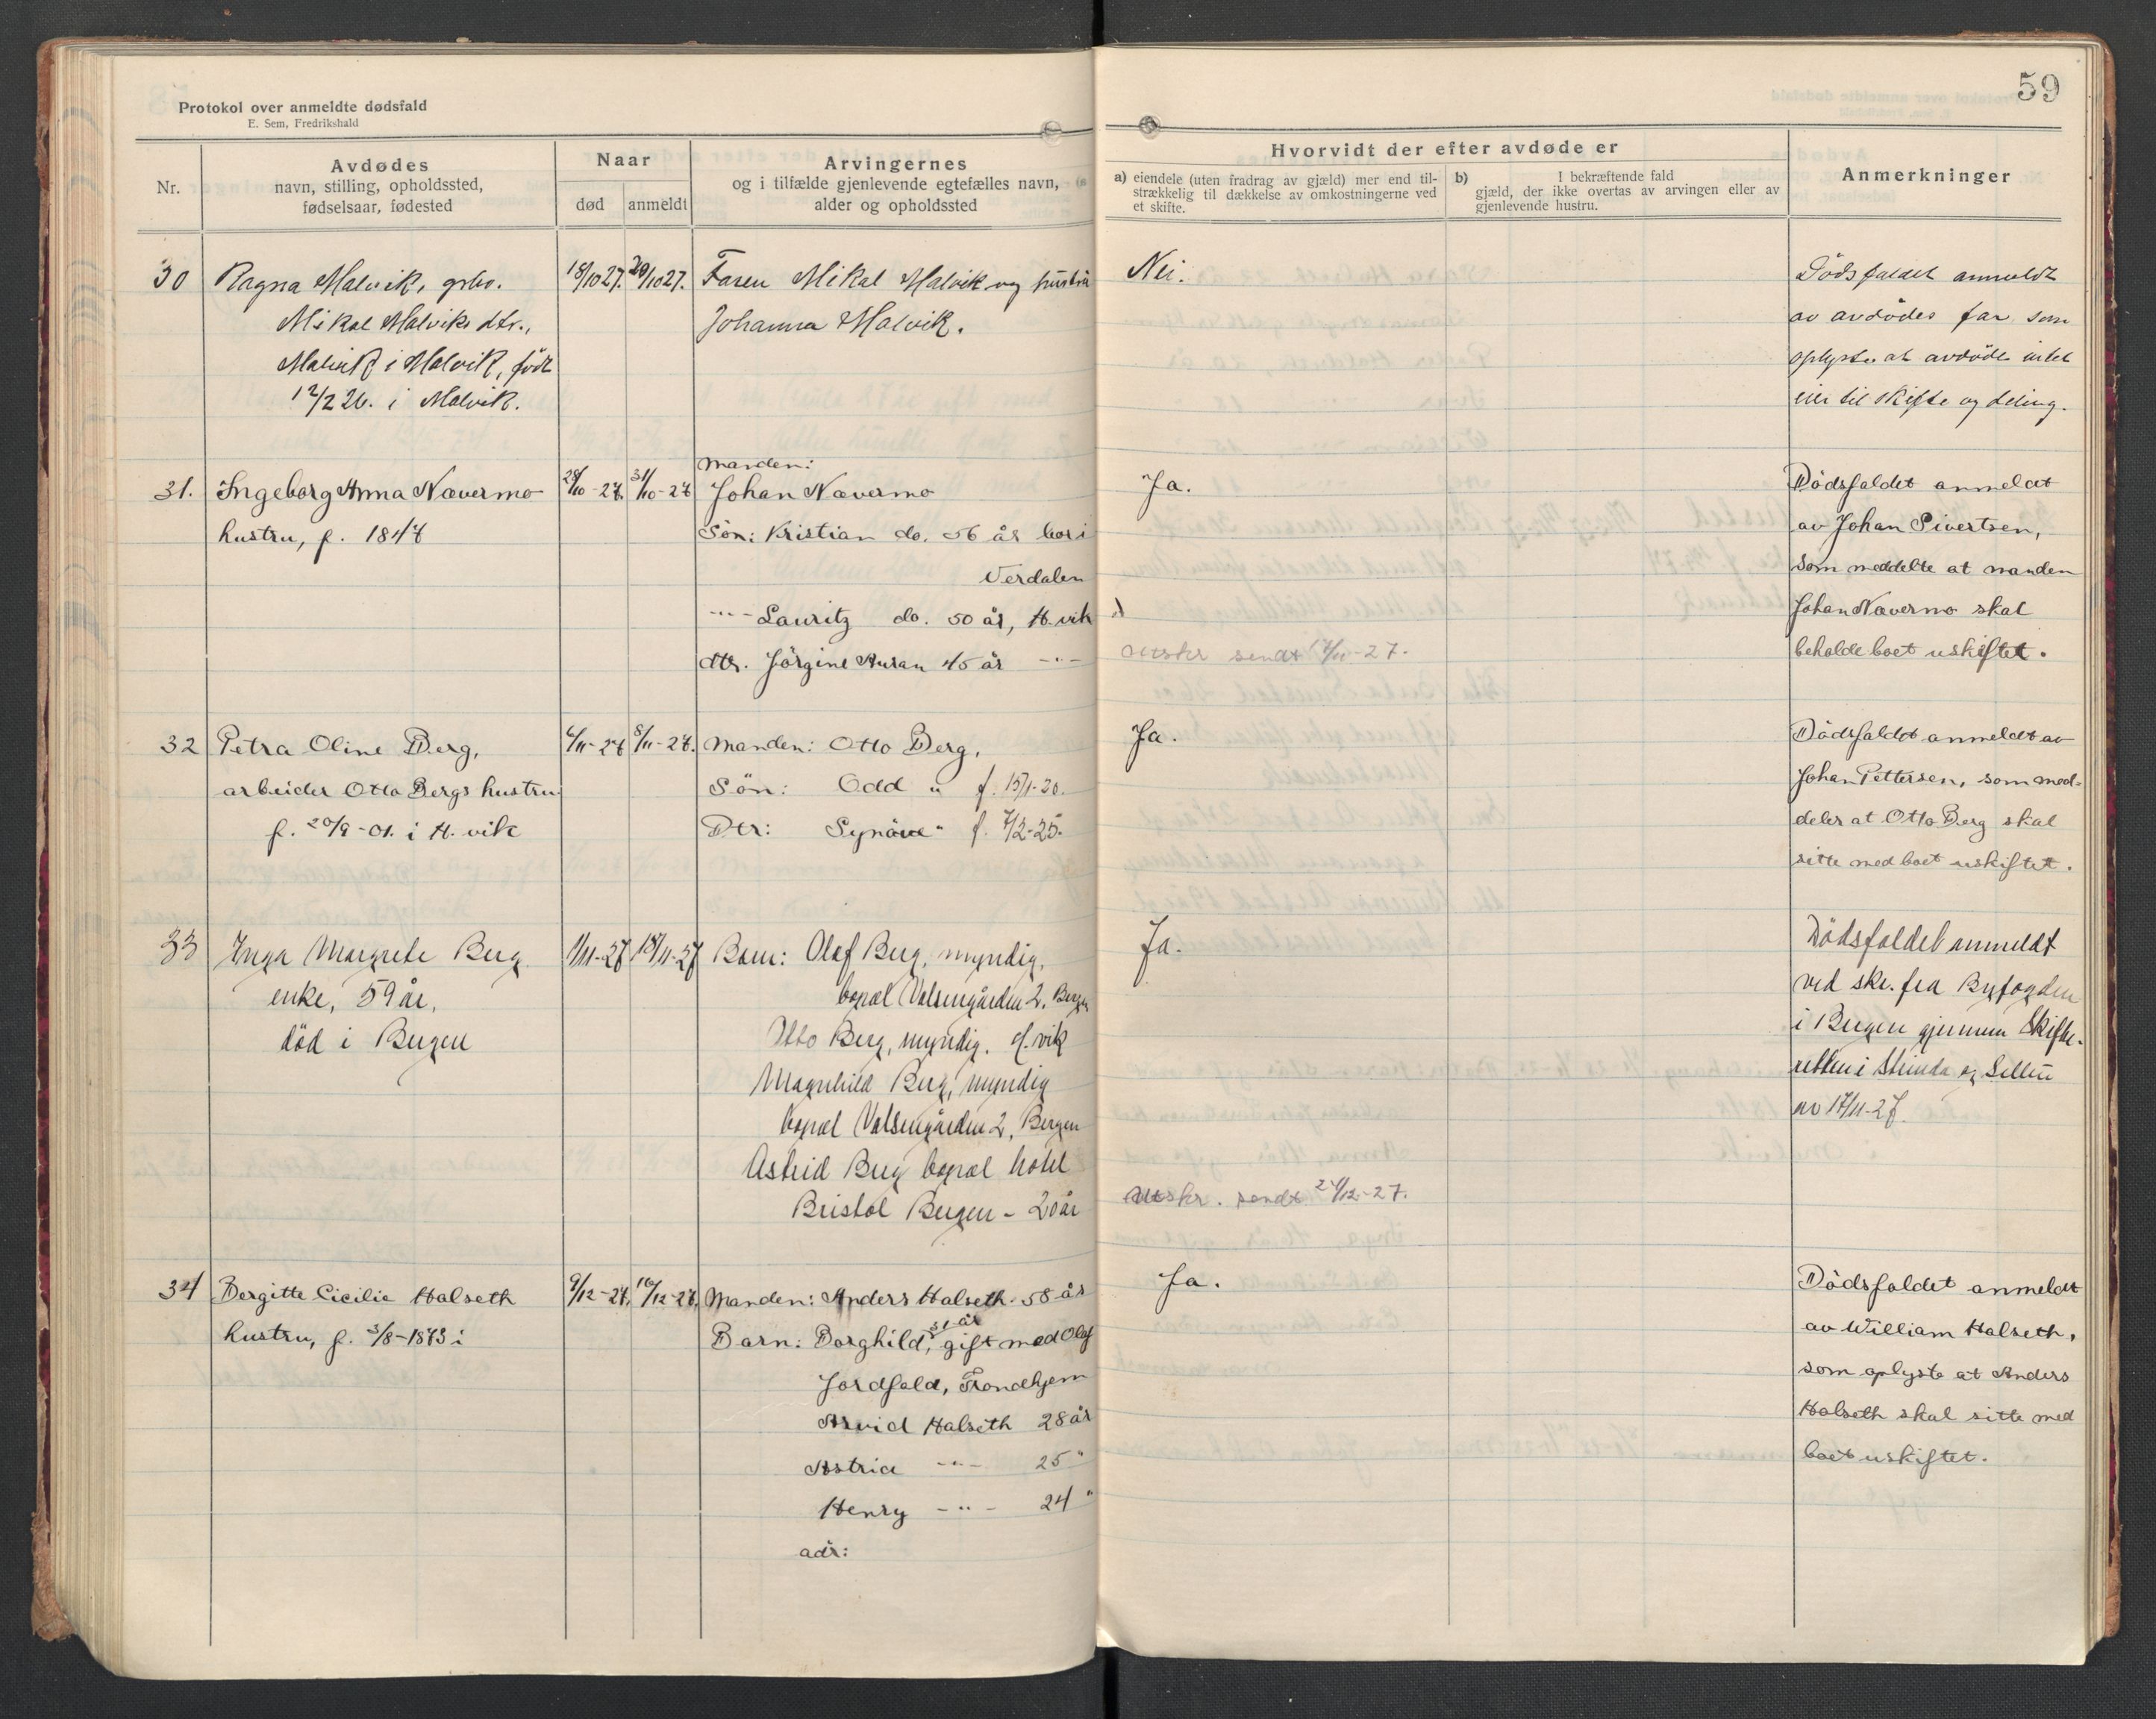 59
Protokol over anmeldte dødsfald
E. Sem, Fredrikshald
Nr.
Avdødes
navn, stilling, opholdssted,
fødselsaar, fødested
Naar
død
anmeldt
Arvingernes
og i tilfælde gjenlevende egtefælles navn,
alder og opholdssted
Hvorvidt der efter avdøde er
a) eiendele (uten fradrag av gjæld) mer end til-
strækkelig til dækkelse av omkostningerne ved
et skifte.
b) I bekræftende fald
gjæld, der ikke overtas av arvingen eller av
gjenlevende hustru.
Anmerkninger
30
Ragna Malvik, grbr.
Mikal Malviks dtr.,
Malvik i Malvik, født
12/2 26. i Malvik.
18/10 27.
29/10 27.
Faren Mikal Malvik og hustru
Johanna Malvik.
Nei.
Dødsfaldet anmeldt
av avdødes far som
oplyste at avdøde intet
eier til skifte og deling.
31.
Ingeborg Anna Nævermo
hustru, f. 1847
28/10-27.
31/10-27
Manden:
Johan Nævermo
Sön: Kristian do. 56 år bor i
Verdalen
-"- Lauritz do. 50 år, H.vik
dtr. Jörgine Auran 45 år -"-
Ja.
Utskr sendt 17/11-27.
Dödsfaldet anmeldt
av Johan Sivertsen,
som meddelte at manden
Johan Nævermo skal
beholde boet uskiftet.
32
Petra Oline Berg,
arbeider Otto Bergs hustru
f. 20/9-01. i H.vik
6/11-27
8/11-27.
Manden: Otto Berg,
Sön: Odd " f. 15/1-20.
Dtr: Synöve " f. 7/2-25.
Ja.
Dödsfaldet anmeldt av
Johan Pettersen, som med-
deler at Otto Berg skal
sitte med boet uskiftet.
33
Inga Margrete Berg
enke, 59 år,
död i Bergen
1/11-27
18/11-27
Barn: Olaf Berg, myndig,
bopæl Valsengården 2, Bergen
Otto Berg, myndig. H.vik
Magnhild Berg, myndig
bopæl Valsengården 2, Bergen
Astrid Berg bopæl hotel
Bristol Bergen - 20 år
Ja.
Utskr. sendt 24/12-27.
Dödsfaldet anmeldt
ved skr. fra Byfogden
i Bergen gjennem Skifte-
retten i Strinda og Selbu
av 17/11-27.
34
Bergitte Cicilie Halseth
hustru, f. 3/8-1873 i
9/12-27.
16/12-27.
Manden: Anders Halseth. 58 år
31 år
Barn: Borghild, gift med Olaf
Jordfald, Trondhjem
Arvid Halseth 28 år
Astrid -"- 25 "
Henry -"- 24 "
adr:
Ja.
Dödsfaldet anmeldt
av William Halseth,
som oplyste at Anders
Halseth skal sitte med
boet uskiftet.